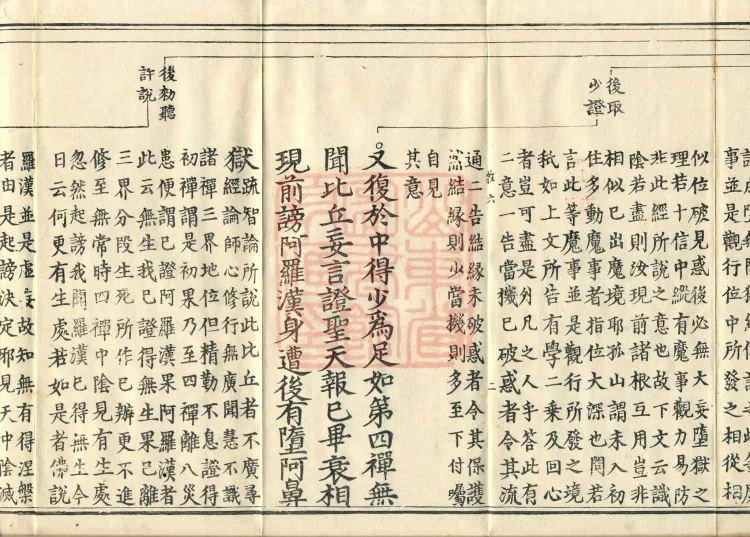 後取
少證
後勑聽
許說
似位破見惑後必無大妄墮獄之
理若十信中縱有魔事觀力易防
非此經所說之意也故下文云識
陰若盡則汝現前諸根互用豈非
相似已出魔境耶孤山謂未入初
住多動魔事者指位大深也問若
言此等魔事並是觀行所發之境
秖如上文所告有學二乘及回心
者豈可盡是外凡之人乎答此有
二意一告當機已破惑者令其流
教六
二
通二告結緣未破惑者令其保護
然結緣則少當機則多至下付囑
自見
其意
又復於中得少為足如第四禪無
聞比丘妄言證聖天報已畢衰相
現前謗阿羅漢身遭後有墮阿鼻
獄疏智論所說此比丘者不廣尋
諸經論師心修行無廣聞慧不識
諸禪三界地位但精勤不息證得
初禪謂是初果乃至四禪離八災
患便謂已證阿羅漢果阿羅漢者
此云無生我已證得無生果已離
三界分段生死所作已辦更不進
修至無常時四禪中陰見有生處
忽然起謗我聞羅漢已得無生今
日云何更有生處若如是者佛說
羅漢並是虛妄故知無有得涅槃
者由是起謗決定邪見天中陰滅